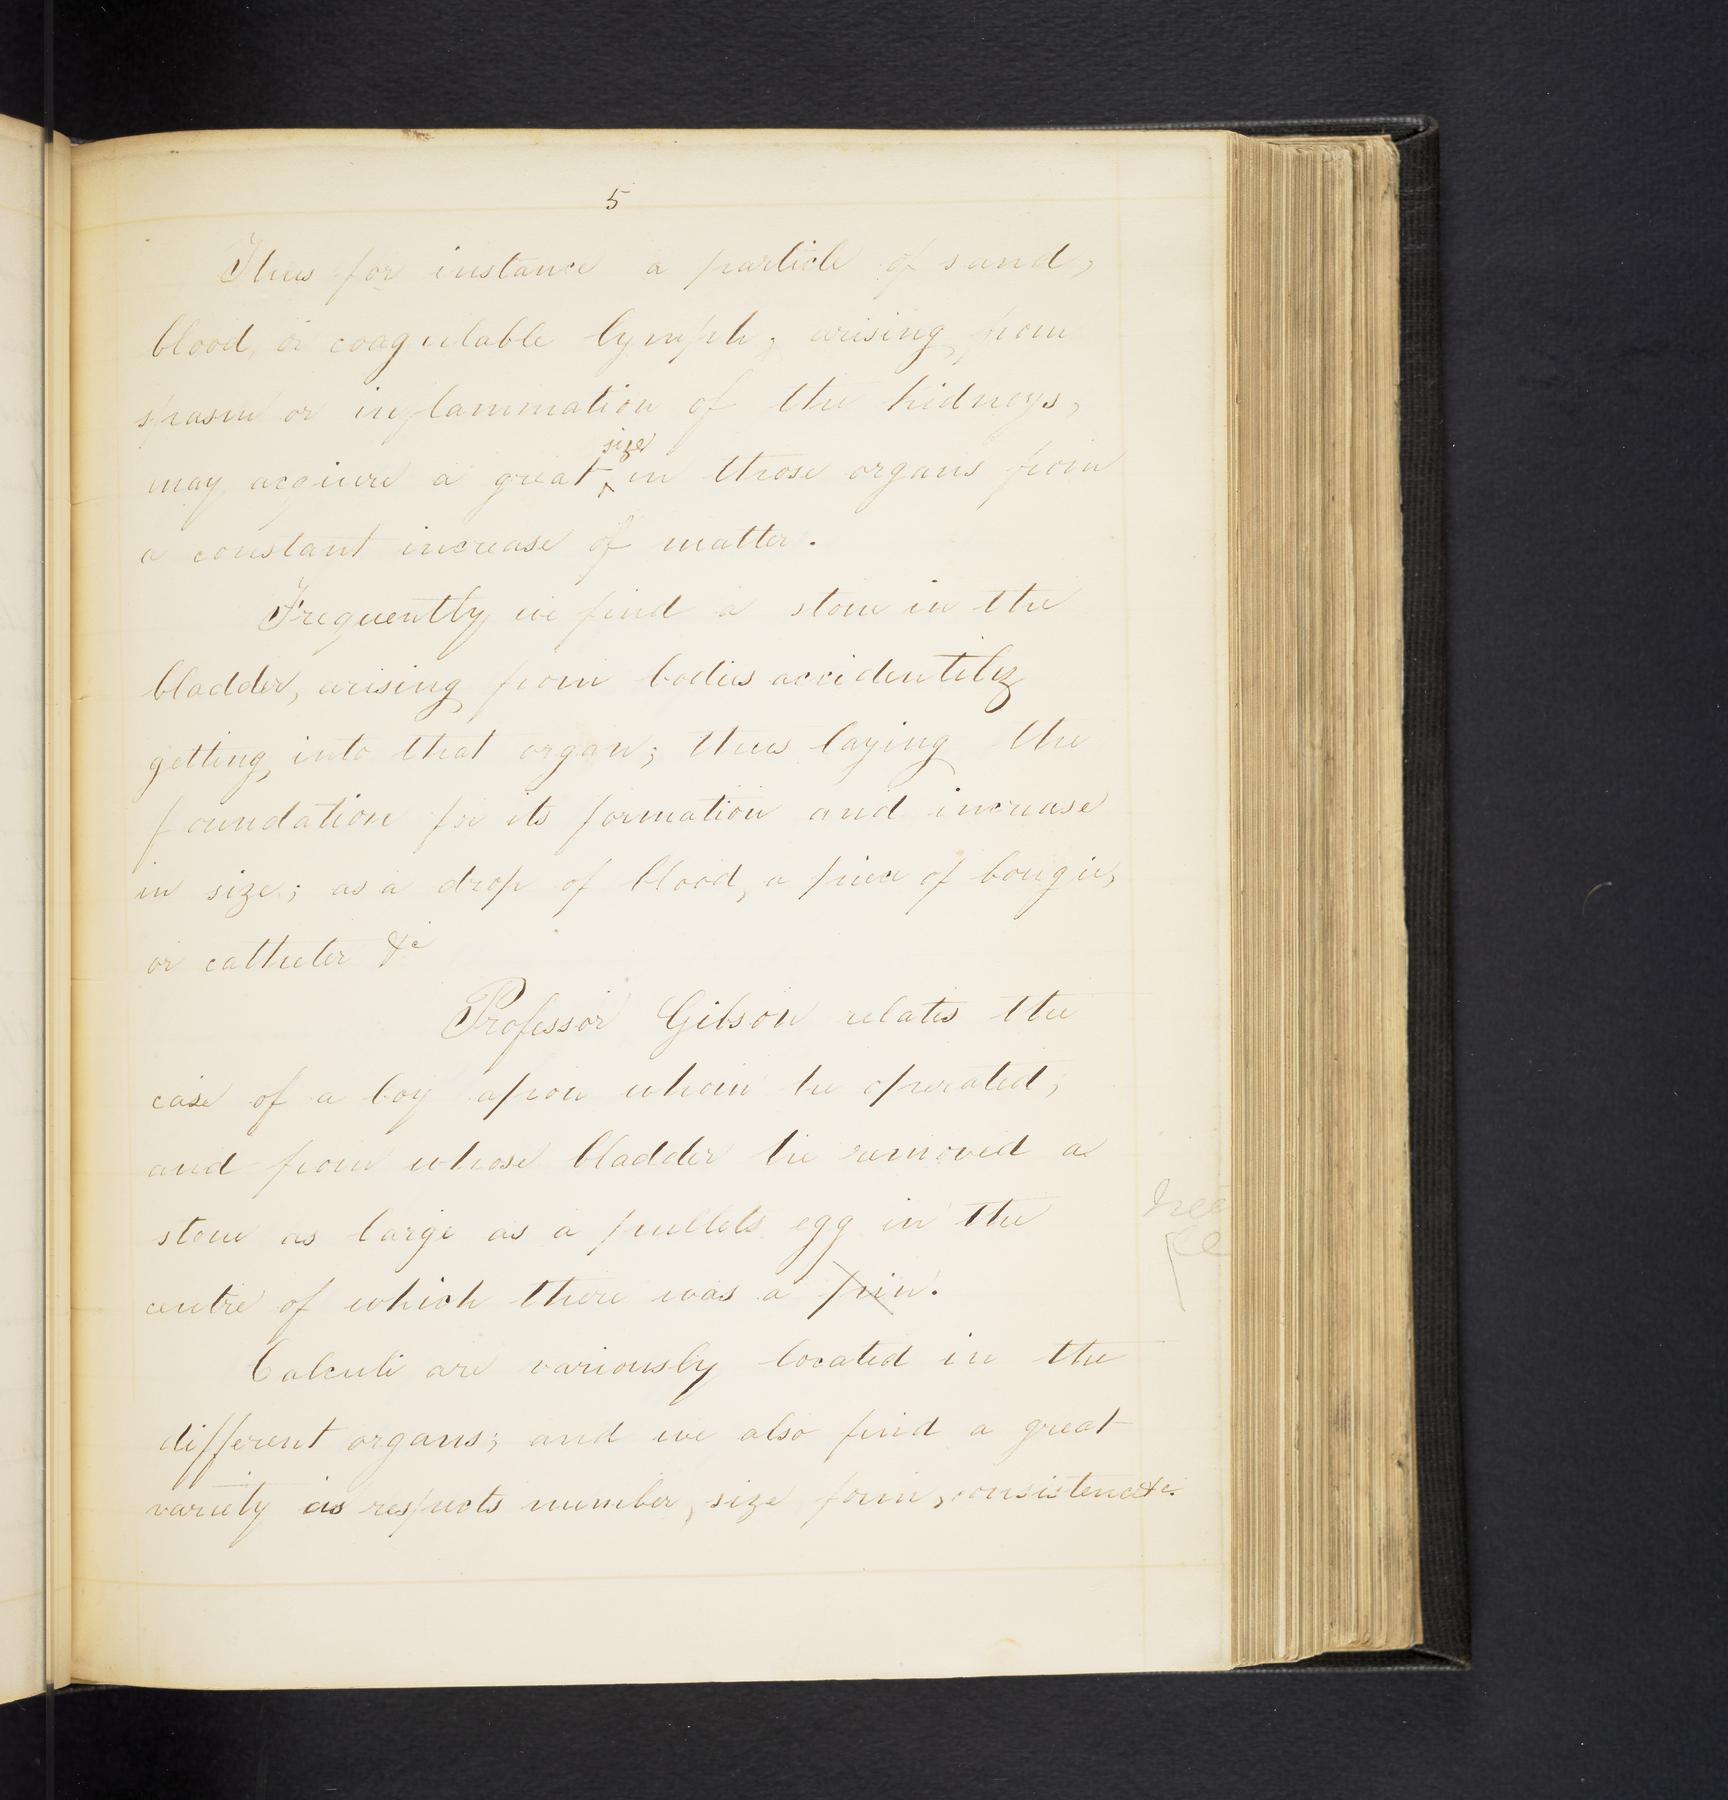 5
Thus for instance a particle of sand,
blood, or coagulable lymph, arising from
spasm or inflammation of the kidneys,
size
may acquire a great ^ in those organs from
a constant increase of matter.
Frequently we find a stone in the
bladder, arising from bodies accidentily
getting into that organ; thus laying the
foundation for its formation and increase
in size; as a drop of blood, a piece of bougie,
or catheter &c
Professor Gibson relates the
case of a boy upon whom he operated,
and from whose bladder he removed a
stone as large as a pullets egg in the
centre of which there was a pin.
Calculi are variously located in the
different organs; and we also find a great
variety as respects number, size form, consistence &c.